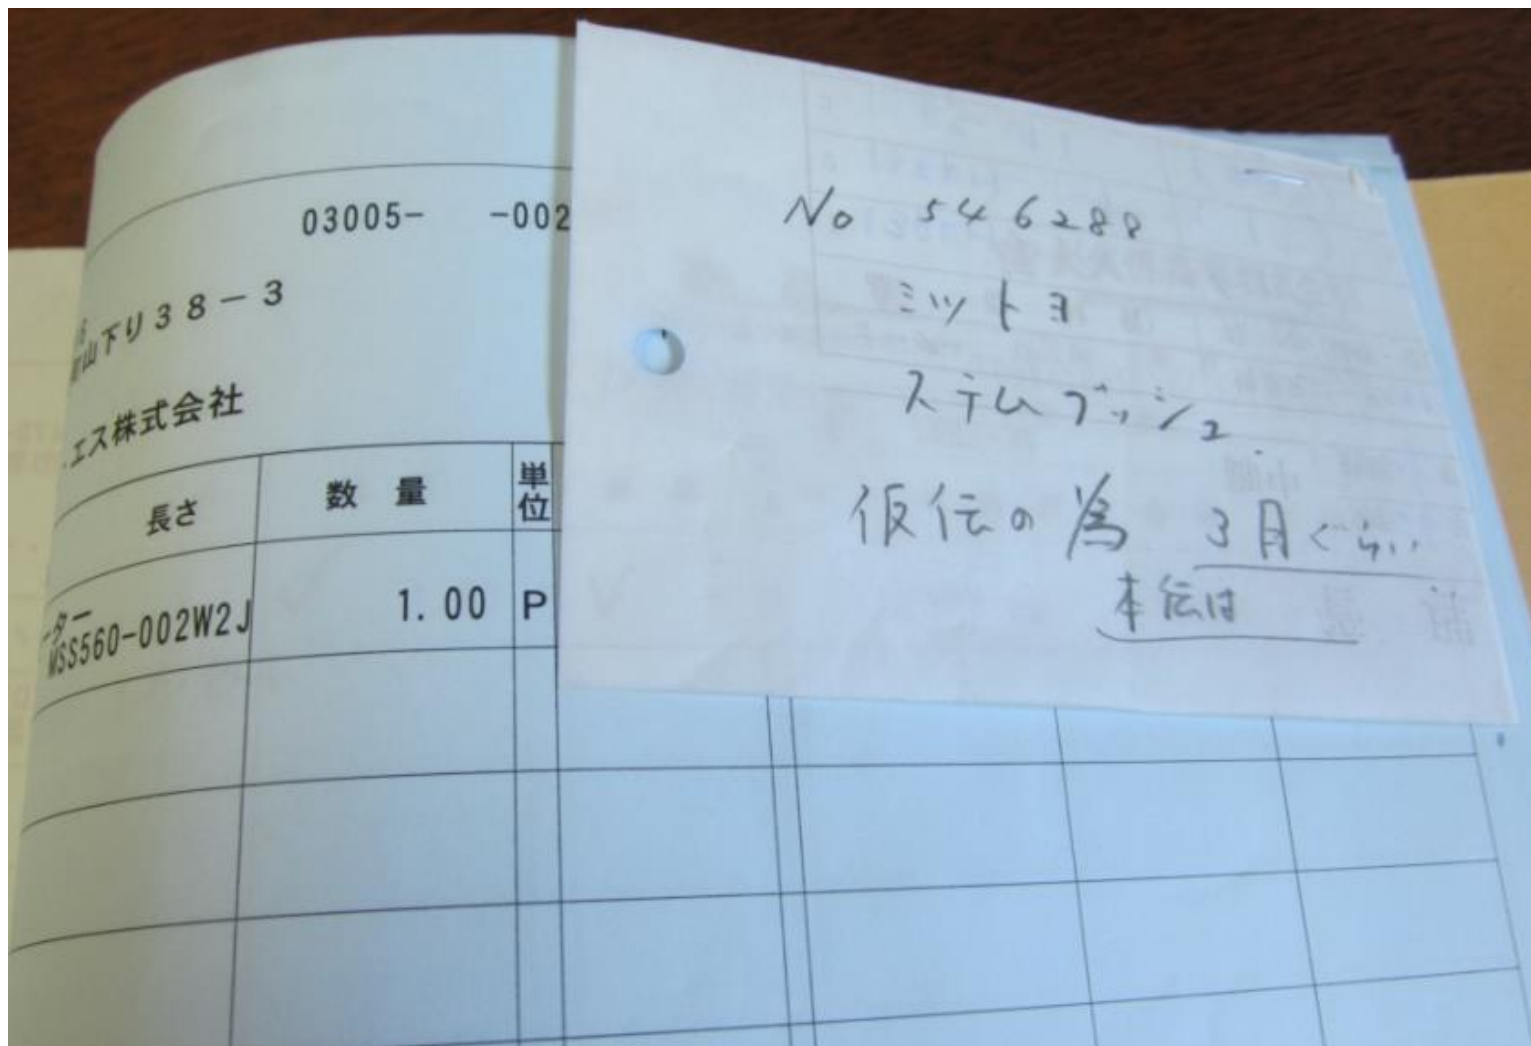 03005-   -002
山下り38-3
エス株式会社
長さ 数量 単位
ター
MSS560-002W2J 1.00 P
No 546288
ミツトヨ
ステムブッシュ
仮伝の為 3月ぐらい
本伝は